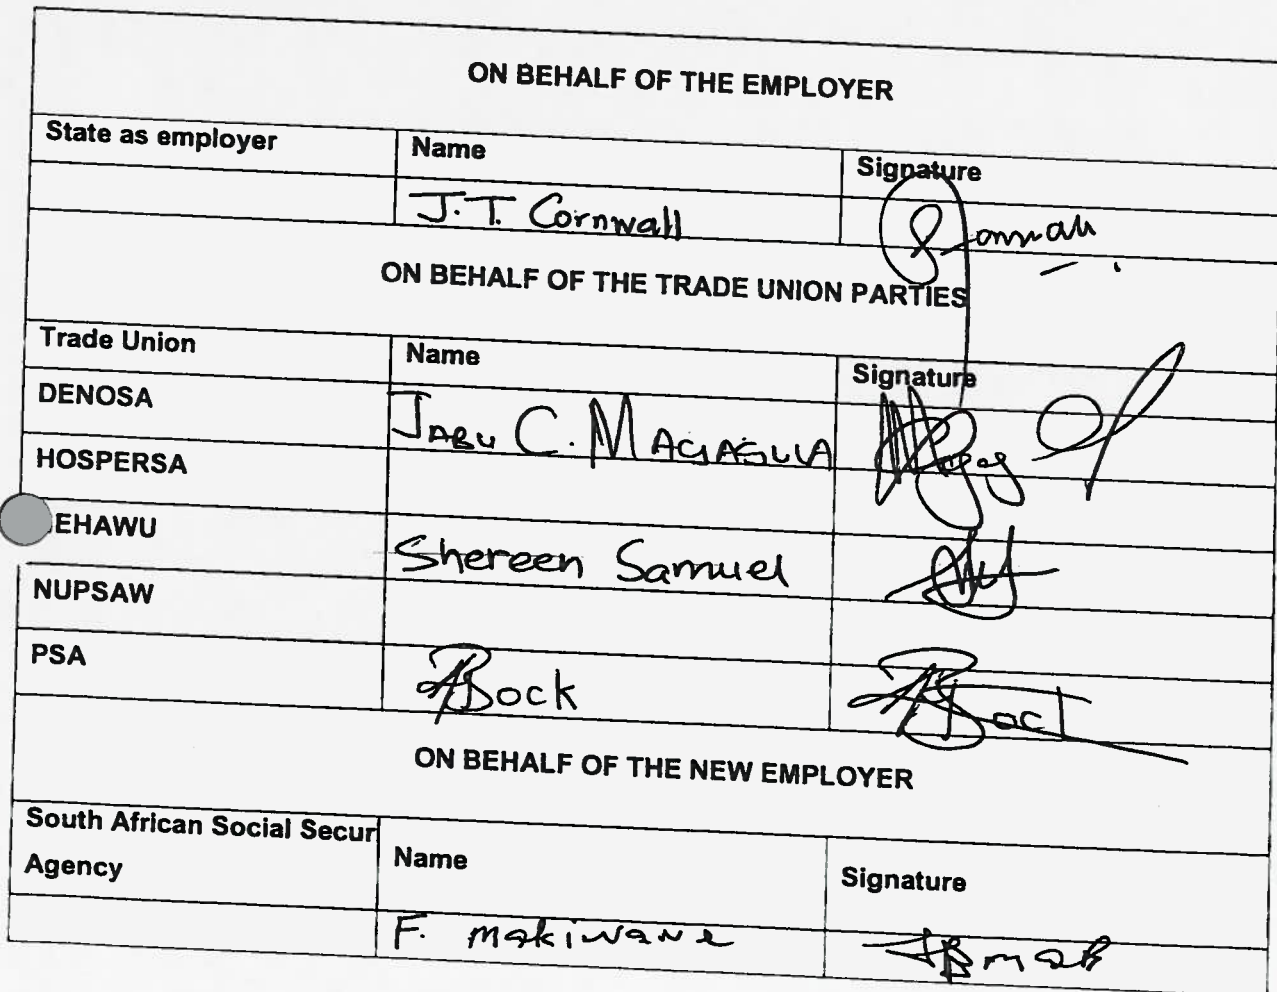 ON BEHALF OF THE EMPLOYER
State as employer Name Signature
J.T. Cornwall
ON BEHALF OF THE TRADE UNION PARTIES
Trade Union Name Signature
DENOSA JABU C. MAGAGULA
HOSPERSA
EHAWU Shereen Samuel
NUPSAW
PSA Bock
ON BEHALF OF THE NEW EMPLOYER
South African Social Secur
Agency Name Signature
F. Makiwane